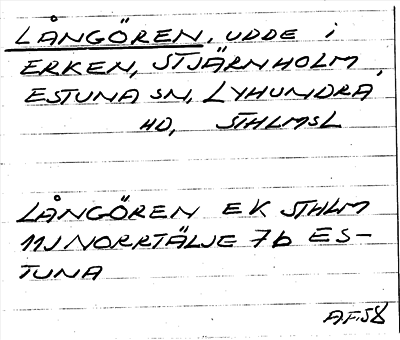 LÅNGÖREN, UDDE i
ERKEN, STJÄRNHOLM,
ESTUNA SN, LYHUNDRA
HD, STHLMSL
LÅNGÖREN EK STHLM
11J NORRTÄLJE 7b ES-
TUNA
A.F.58